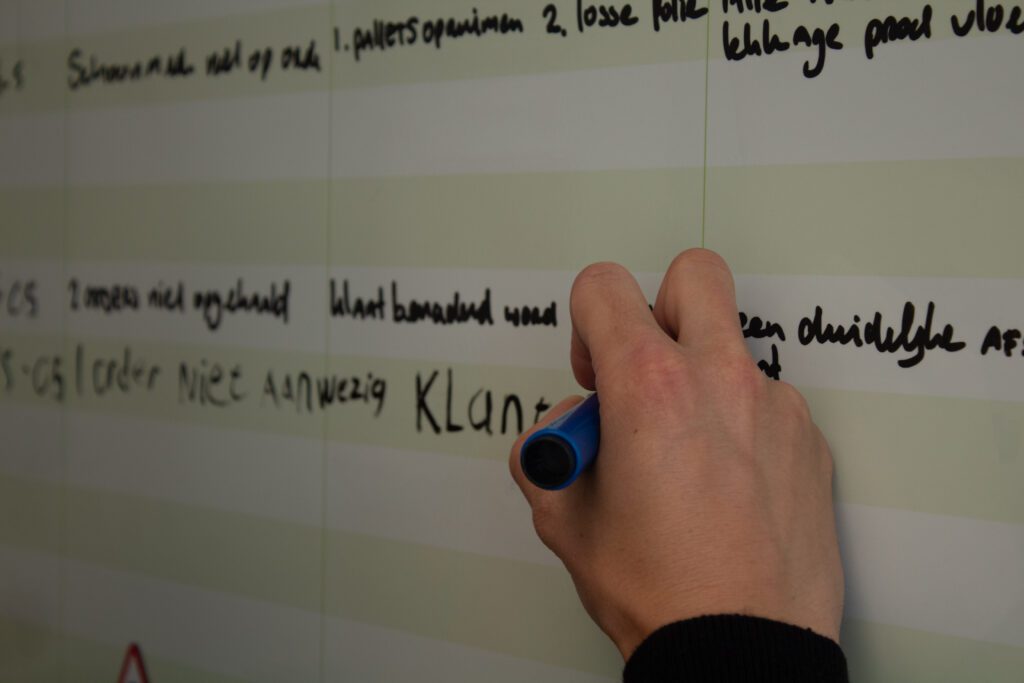 niet op orde 1. pallets opruimen 2. losse folie
lekkage prod vloe
CS 2 orders niet opgehaald klant benaderd word een duidelijke AFS
CS 1 order Niet AANwezig KLant